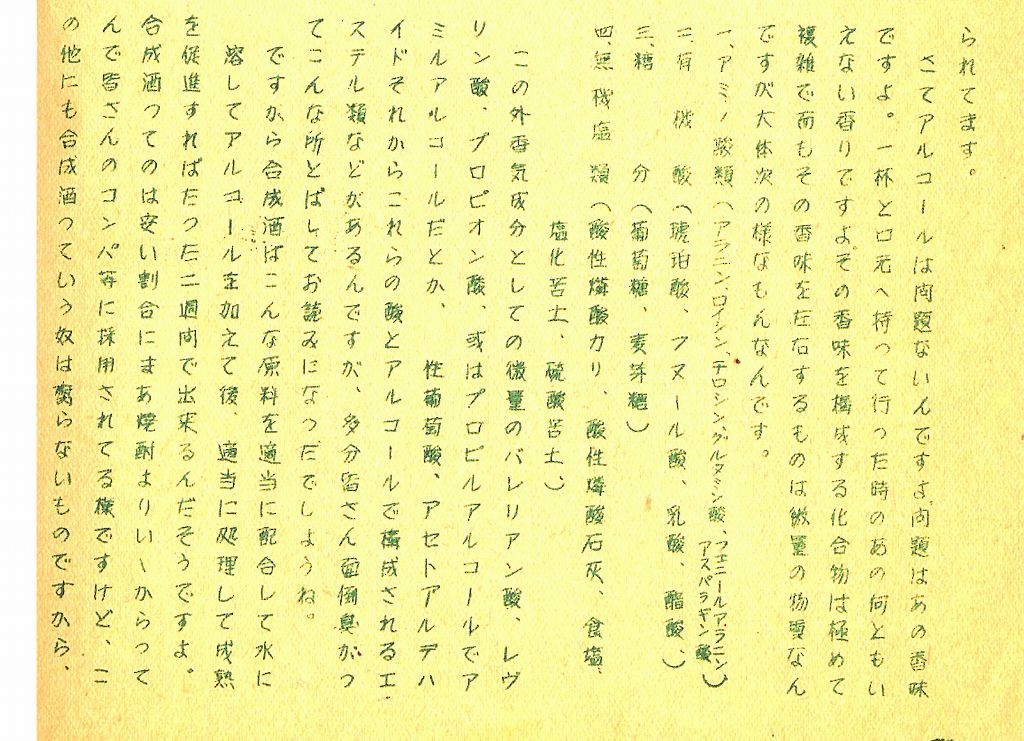 られてます。
さてアルコールは問題ないんですよ、問題はあの香味
ですよ。一杯と口元へ持つて行つた時のあの何ともい
えない香りですよ。その香味を構成する化合物は極めて
複雑で而もその香味を左右するものは微量の物質なん
ですが大体次の様なもんなんです。
一、アミノ酸類（アラニン、ロイシン、チロシン、グルタミン酸、フエニールアラニン、アスパラギン酸）
二、有機酸（琥珀酸、フマール酸、乳酸、酢酸、）
三、糖分（葡萄糖、麦芽糖）
四、無機塩類（酸性燐酸カリ、酸性燐酸石灰、食塩、
塩化苦土、硫酸苦土、）
この外香気成分としての微量のバレリアン酸、レヴ
リン酸、プロピオン酸、或はプロピルアルコールでア
ミルアルコールだとか、性葡萄酸、アセトアルデハ
イドそれからこれらの酸とアルコールで構成されるエ
ステル類などがあるんですが、多分皆さん面倒臭がつ
てこんな所とばしてお読みになつたでしようね。
ですから合成酒はこんな原料を適当に配合して水に
溶してアルコールを加えて後、適当に処理して成熟
を促進すればたつた二週間で出来るんだそうですよ。
合成酒つてのは安い割合にまあ焼酎よりいゝからつて
んで皆さんのコンパ等に採用されてる様ですけど、こ
の他にも合成酒つていう奴は腐らないものですから、